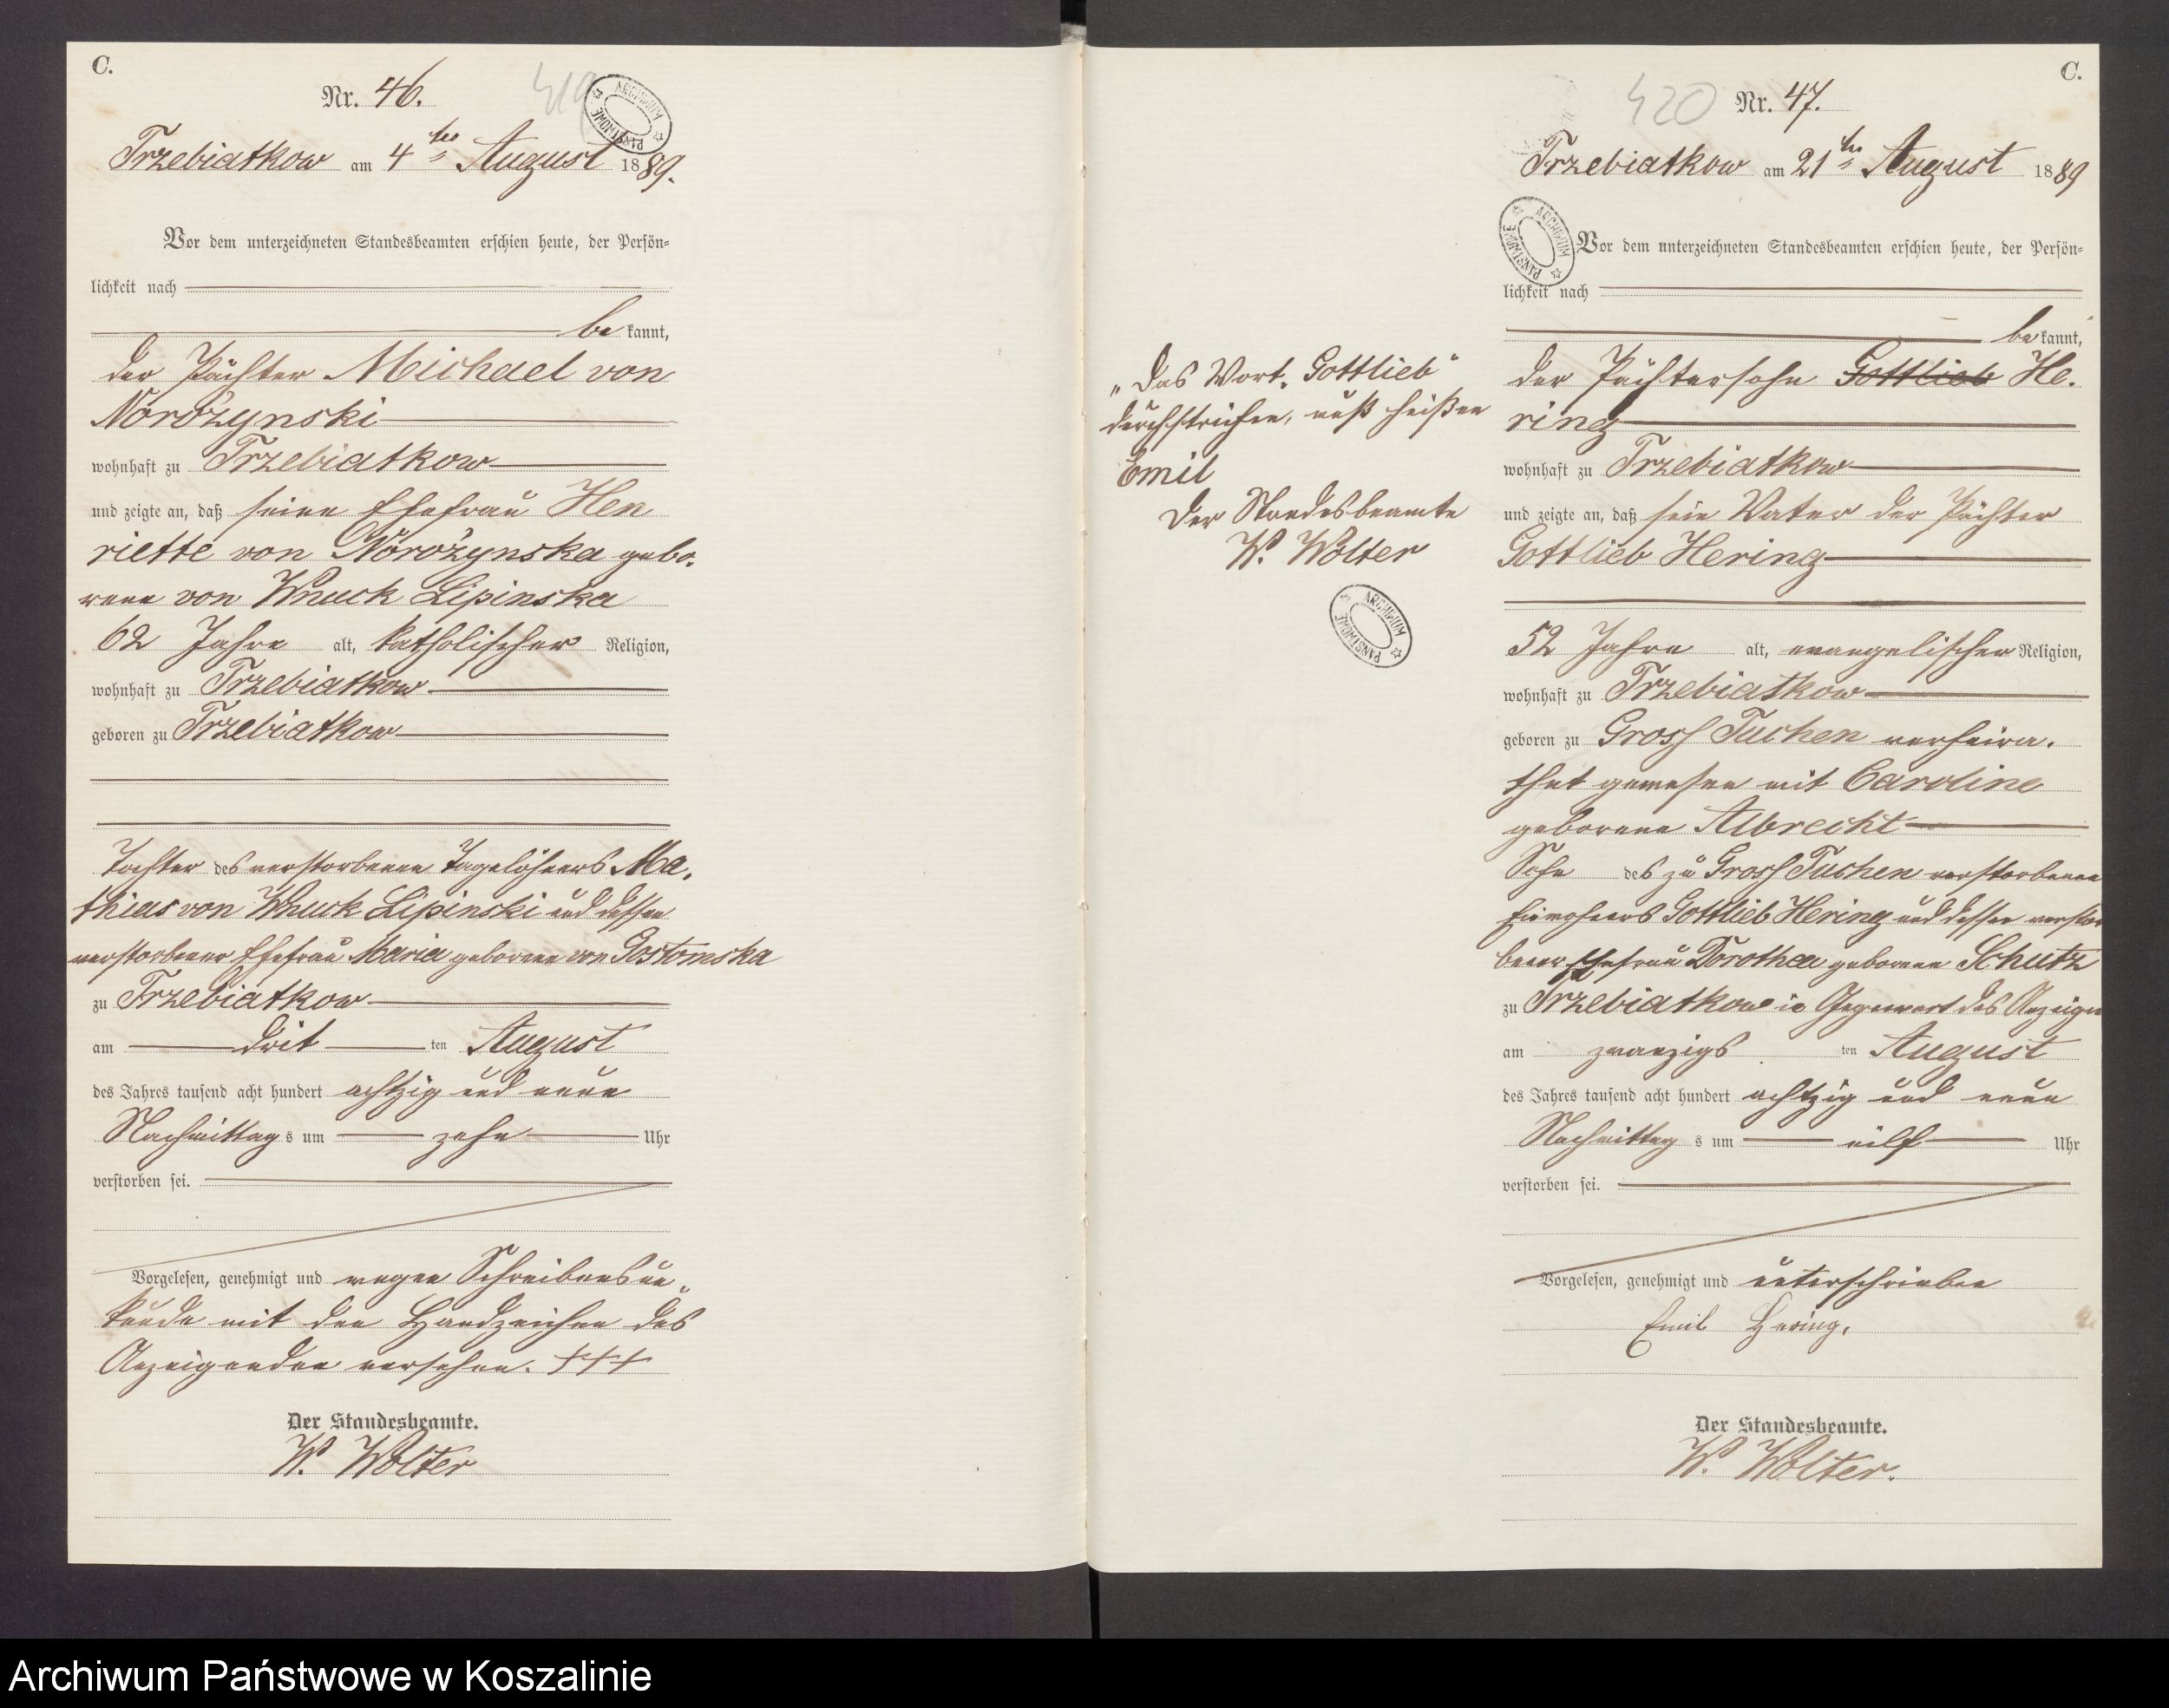 C.
Nr. 46.
419
ARCHIWUM PAŃSTWOWE
Trzebiatkow am 4ten August 1889.
Vor dem unterzeichneten Standesbeamten erschien heute, der Persön=
lichkeit nach
be kannt,
der Pächter Michael von
Norożynski
wohnhaft zu Trzebiatkow
und zeigte an, daß seine Ehefrau Hen
riette von Norożynska gebo-
rene von Wnuck Lipinska
62 Jahre alt, katholischer Religion,
wohnhaft zu Trzebiatkow
geboren zu Trzebiatkow
Tochter des verstorbenen Tagelöhners Ma-
thias von Wnuck Lipinski und dessen
verstorbener Ehefrau Maria geborene von Gostomska
zu Trzebiatkow
am drit ten August
des Jahres tausend acht hundert achtzig und neun
Nachmittag s um zehn Uhr
verstorben sei.
Vorgelesen, genehmigt und wegen Schreibensun-
kunde mit den Handzeichen des
Anzeigenden versehen. +++
Der Standesbeamte.
W. Wolter
C.
420
Nr. 47.
Trzebiatkow am 21ten August 1889
ARCHIWUM PAŃSTWOWE
Vor dem unterzeichneten Standesbeamten erschien heute, der Persön=
lichkeit nach
be kannt,
der Pächtersohn Gottlieb He-
ring
wohnhaft zu Trzebiatkow
und zeigte an, daß sein Vater der Pächter
Gottlieb Hering
52 Jahre alt, evangelischer Religion,
wohnhaft zu Trzebiatkow
geboren zu Gross Tuchen verheira-
thet gewesen mit Caroline
geborene Albrecht
Sohn des zu Gross Tuchen verstorbenen
Eigenthümers Gottlieb Hering und dessen verstor
bener Ehefrau Dorothea geborene Schutz
zu Trzebiatkow in Gegenwart des Anzeigen
am zwanzigs ten August
des Jahres tausend acht hundert achtzig und neun
Nachmittag s um eilf Uhr
verstorben sei.
Vorgelesen, genehmigt und unterschrieben
Emil Hering.
Der Standesbeamte.
W. Wolter.
„Das Wort „Gottlieb"
durchstrichen, muß heißen
Emil
Der Standesbeamte
W. Wolter
ARCHIWUM PAŃSTWOWE
Archiwum Państwowe w Koszalinie